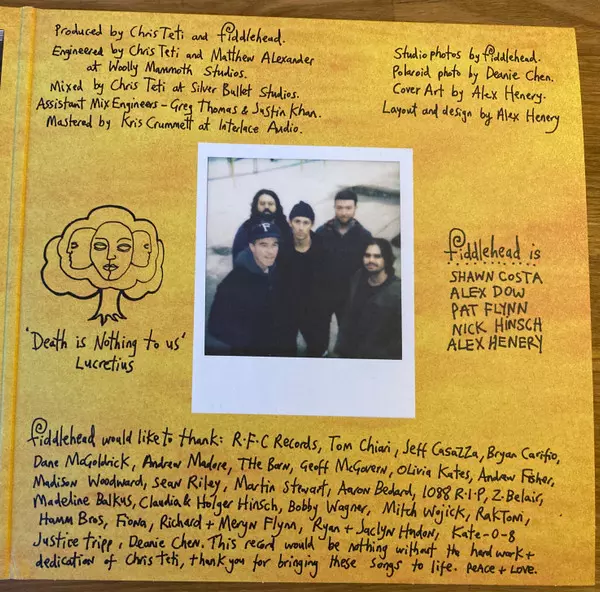 Produced by Chris Teti and fiddlehead.
Engineered by Chris Teti and Matthew Alexander
at Woolly Mammoth Studios.
Mixed by Chris Teti at Silver Bullet Studios.
Assistant Mix Engineers - Greg Thomas & Justin Khan.
Mastered by Kris Crummett at Interlace Audio.
Studio photos by fiddlehead.
Polaroid photo by Deanie Chen.
Cover Art by Alex Henery.
Layout and design by Alex Henery
"Death is Nothing to us"
Lucretius
fiddlehead is
SHAWN COSTA
ALEX DOW
PAT FLYNN
NICK HINSCH
ALEX HENERY
fiddlehead would like to thank: R.F.C Records, Tom Chiari, Jeff Casazza, Bryan Carifio,
Dane McGoldrick, Andrew Madore, THe Barn, Geoff McGovern, Olivia Kates, Andrew Fisher,
Madison Woodward, Sean Riley, Martin Stewart, Aaron Bedard, 1088 R.I.P, Z. Belair,
Madeline Balkus, Claudia & Holger Hinsch, Bobby Wagner, Mitch Wojick, RakToni,
Hamm Bros, Fiona, Richard + Meryn Flynn, Ryan + Jaclyn Hndon, Kate-0-8
Justice Tripp, Deanie Chen. This record would be nothing without the hard work +
dedication of Chris Teti, thank you for bringing these songs to life. PEACE + LOVE.